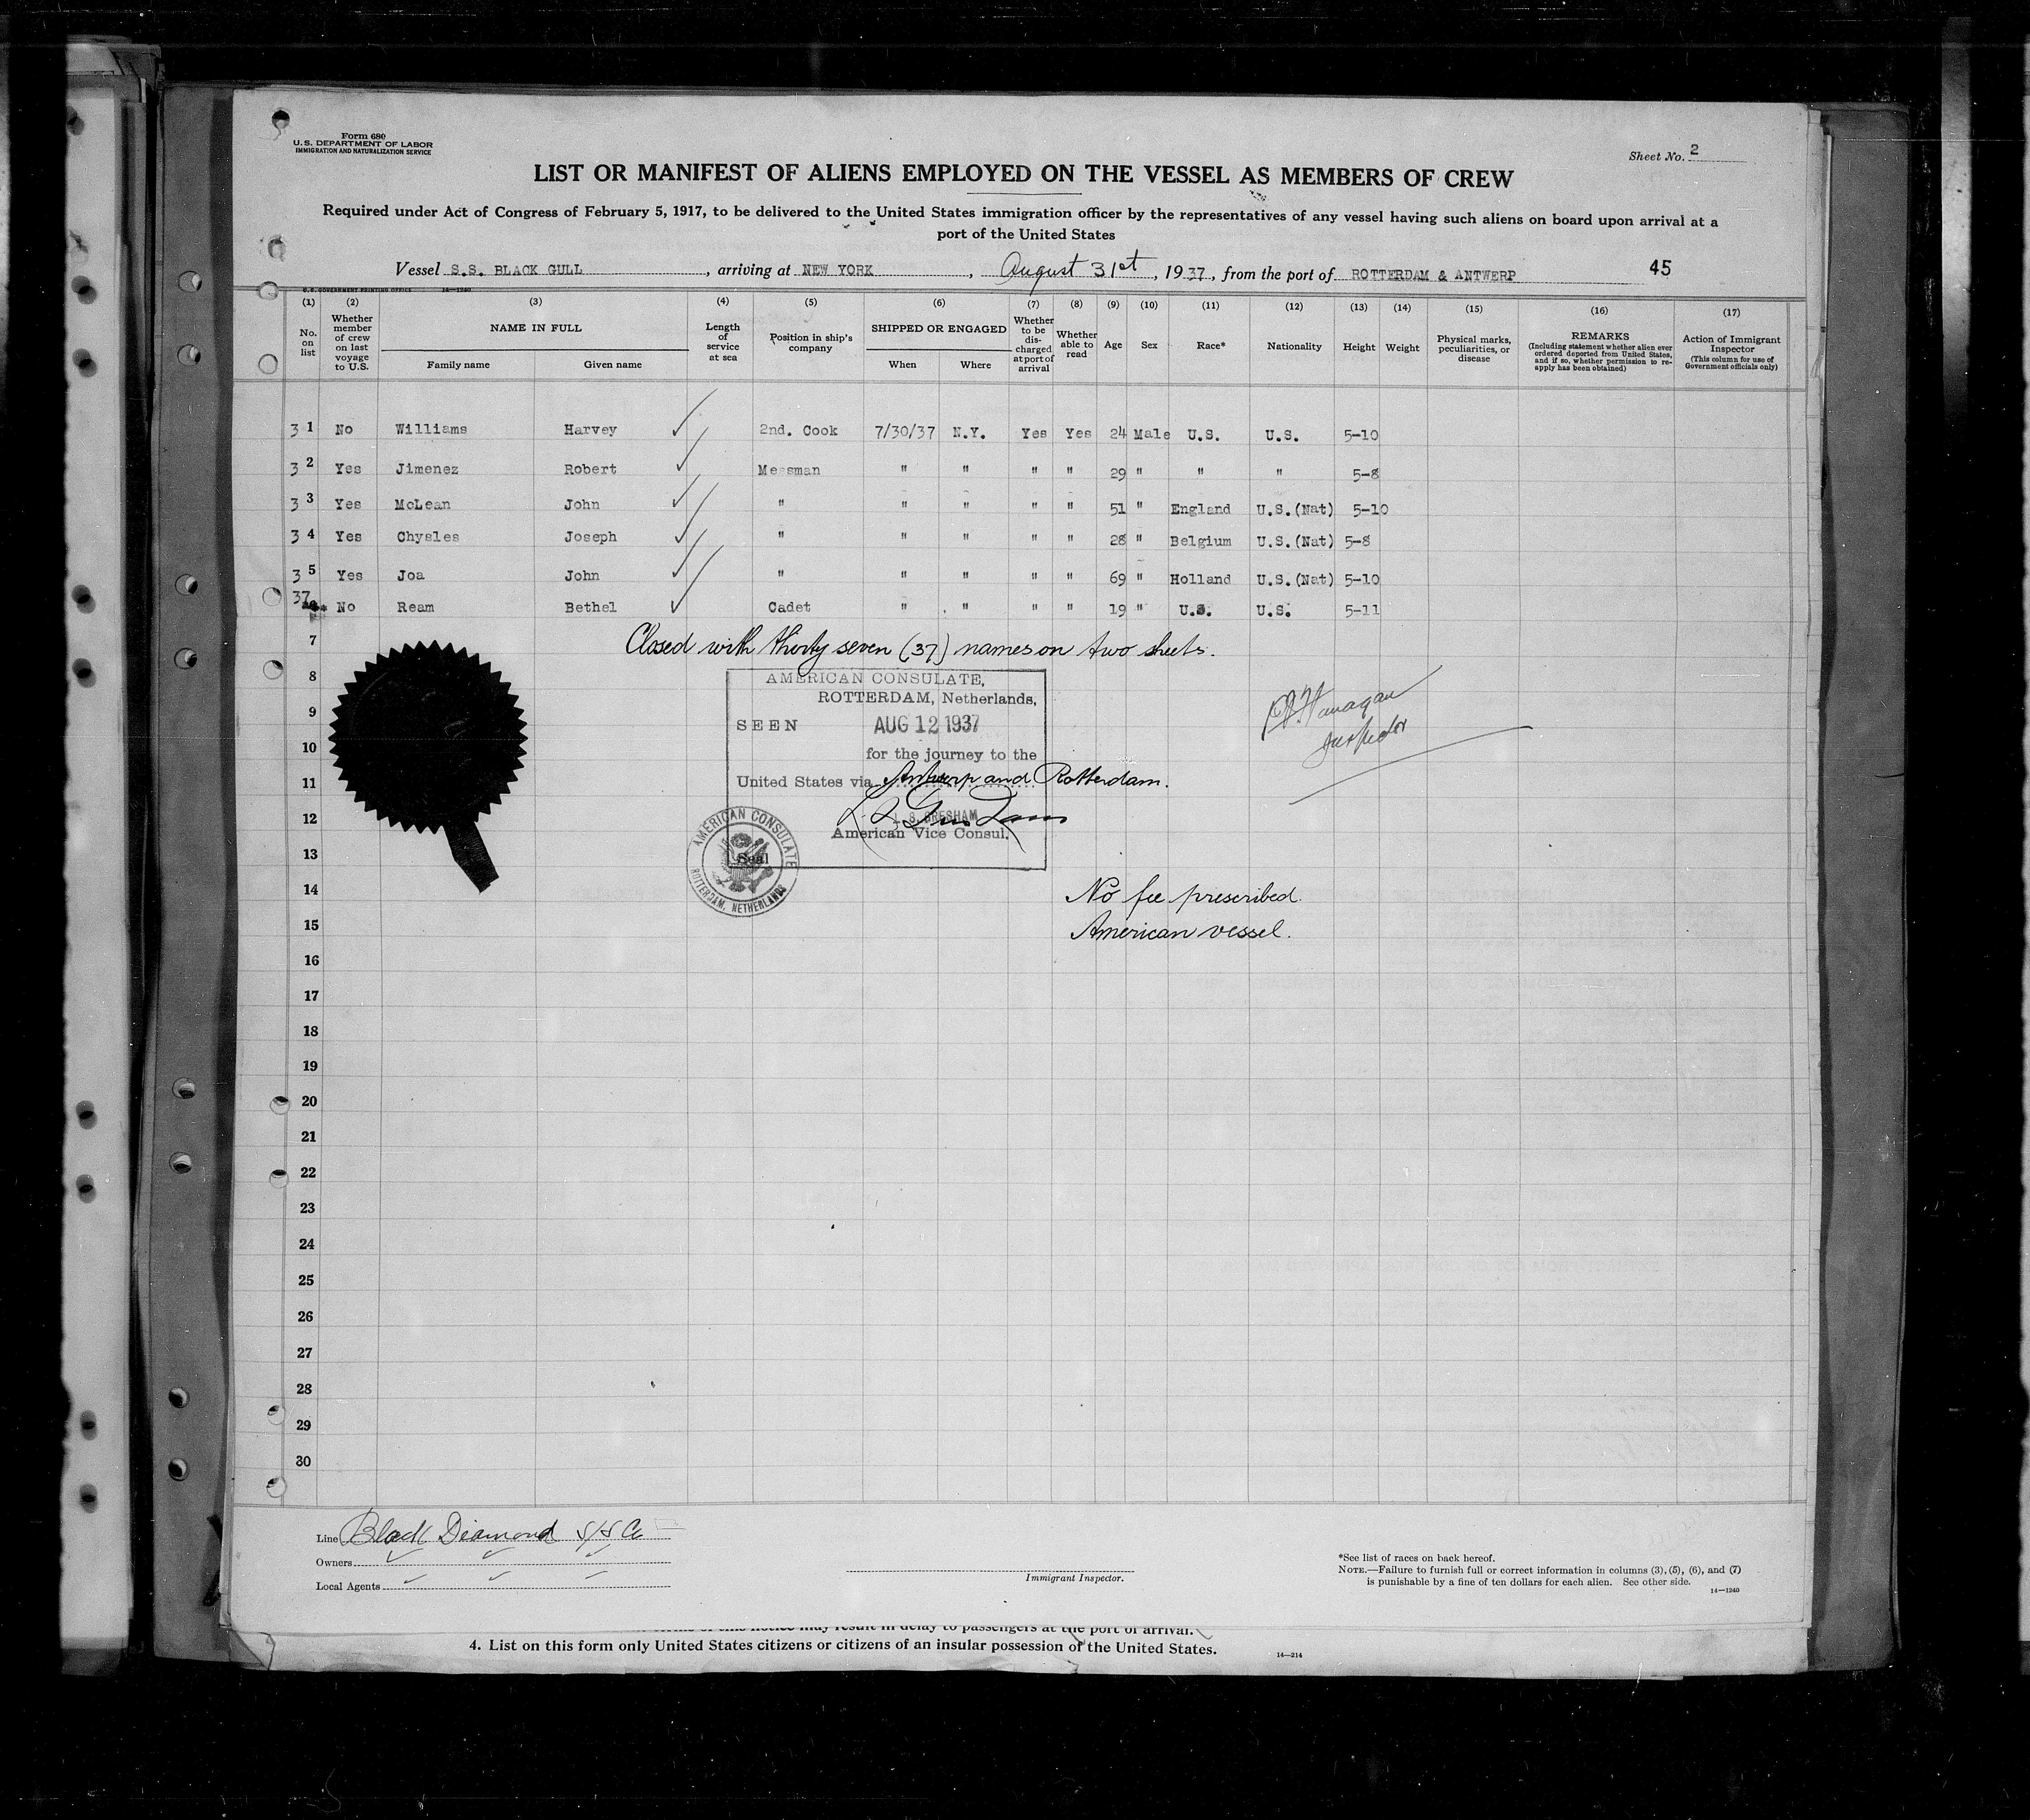 Form 680
U.S. DEPARTMENT OF LABOR
IMMIGRATION AND NATURALIZATION SERVICE
Sheet No. 2
LIST OR MANIFEST OF ALIENS EMPLOYED ON THE VESSEL AS MEMBERS OF CREW
Required under Act of Congress of February 5, 1917, to be delivered to the United States immigration officer by the representatives of any vessel having such aliens on board upon arrival at a
port of the United States
Vessel S.S. BLACK GULL, arriving at NEW YORK, August 31st, 1937, from the port of ROTTERDAM & ANTWERP 45
U.S. GOVERNMENT PRINTING OFFICE 14—1240
(1) (2) (3) (4) (5) (6) (7) (8) (9) (10) (11) (12) (13) (14) (15) (16) (17)
No. on list
Whether member of crew on last voyage to U.S.
NAME IN FULL
Family name
Given name
Length of service at sea
Position in ship's company
SHIPPED OR ENGAGED
When
Where
Whether to be discharged at port of arrival
Whether able to read
Age
Sex
Race*
Nationality
Height
Weight
Physical marks, peculiarities, or disease
REMARKS
(Including statement whether alien ever ordered deported from United States, and if so, whether permission to re-apply has been obtained)
Action of Immigrant Inspector
(This column for use of Government officials only)
3 1 No Williams Harvey 2nd. Cook 7/30/37 N.Y. Yes Yes 24 Male U.S. U.S. 5-10
3 2 Yes Jimenez Robert Messman " " " " 29 " " " 5-8
3 3 Yes McLean John " " " " " 51 " England U.S.(Nat) 5-10
3 4 Yes Chysles Joseph " " " " " 28 " Belgium U.S.(Nat) 5-8
3 5 Yes Joa John " " " " " 69 " Holland U.S.(Nat) 5-10
37 No Ream Bethel Cadet " " " " 19 " U.S. U.S. 5-11
7 Closed with thirty seven (37) names on two sheets.
8 AMERICAN CONSULATE,
ROTTERDAM, Netherlands,
9 SEEN AUG 12 1937
10 for the journey to the
11 United States via Antwerp and Rotterdam.
12 L. S. GRESHAM
American Vice Consul.
13 Seal
AMERICAN CONSULATE
ROTTERDAM, NETHERLANDS
Inspector
14 No fee prescribed.
15 American vessel.
16
17
18
19
20
21
22
23
24
25
26
27
28
29
30
Line Black Diamond S/S Co
Owners
Local Agents
Immigrant Inspector.
*See list of races on back hereof.
NOTE.—Failure to furnish full or correct information in columns (3), (5), (6), and (7)
is punishable by a fine of ten dollars for each alien. See other side.
14—1240
of this notice may result in delay to passengers at the port of arrival.
4. List on this form only United States citizens or citizens of an insular possession of the United States.
14—214